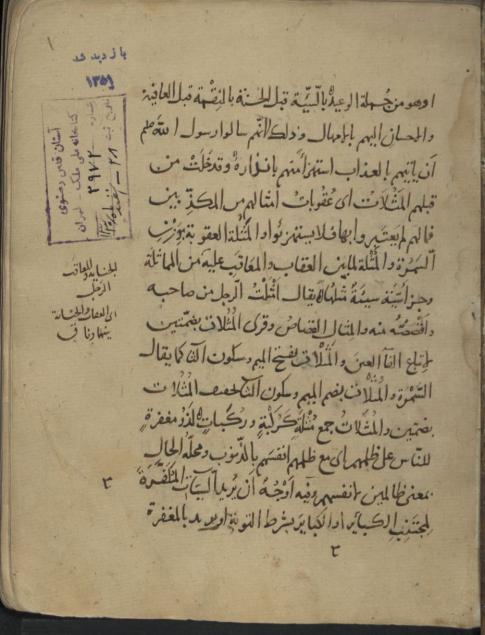 بازدید شد
۱۳۵۹
آستان قدس رضوی
کتابخانه ملی ملک - تهران
شماره ۲۹۷۲
تاریخ ثبت
او هو من جملة الوعيد بالسيّئة قبل الحسنة بالنِقْمة قبل العافية
والاحسان اليهم بالامهال وذلك انّهم سالوا رسول الله صلعم
أن ياتيهم بالعذاب استهزاءً منهم بانذاره وقدْ خَلَتْ من
قبلهم المَثُلَات اى عُقُوبات امثالهم من المكذّبين
فما لهم لم يعتبروا بها فلا يستهزئوا والمُثْلة العقوبة بوزن
السَمُرَة والمُثْلة لما بين العقاب والمعاقب عليه من المماثلة
وجزاء سَيّئة سيّئةٌ مثلها يقال امثلتُ الرجل من صاحبه
واقصصتُه منه والمثال القصاص وقرئ المُثُلات بضمّتين
باتباع الفاء العين والمَثْلات بفتح الميم وسكون الثاء كما يقال
السَّمْرة والمُثْلات بضم الميم وسكون الثاء تخفيف المُثُلات
بضمتين والمُثُلات جمع مُثْلَة كَرُكْبَةٍ ورُكُبات لَذُو مغفرةٍ
للناس على ظلمهم اى مع ظلمهم انفسَهم بالذنوب ومحلّه الحال
بمعنى ظالمين لانفسهم وفيه اوْجُهٌ أن يريد السيّآت المكفَّرةَ
لمجتنب الكبائر او الكبائر بشرط التوبة او يريد بالمغفرة